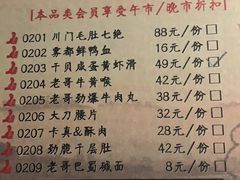 [本品类会员享受午市/晚市折扣
0201 川门毛肚七绝 88元/份□
0202 雾都鲜鸭血 16元/份□
0203 干贝咸蛋黄虾滑 49元/份□
0204 老哥牛黄喉 42元/份□
0205 老哥劲爆牛肉丸 38元/份□
0206 大刀腰片 32元/份□
0207 卡真&酥肉 28元/份□
0208 劲脆千层肚 42元/份□
0209 老哥巴蜀碱面 8元/份□